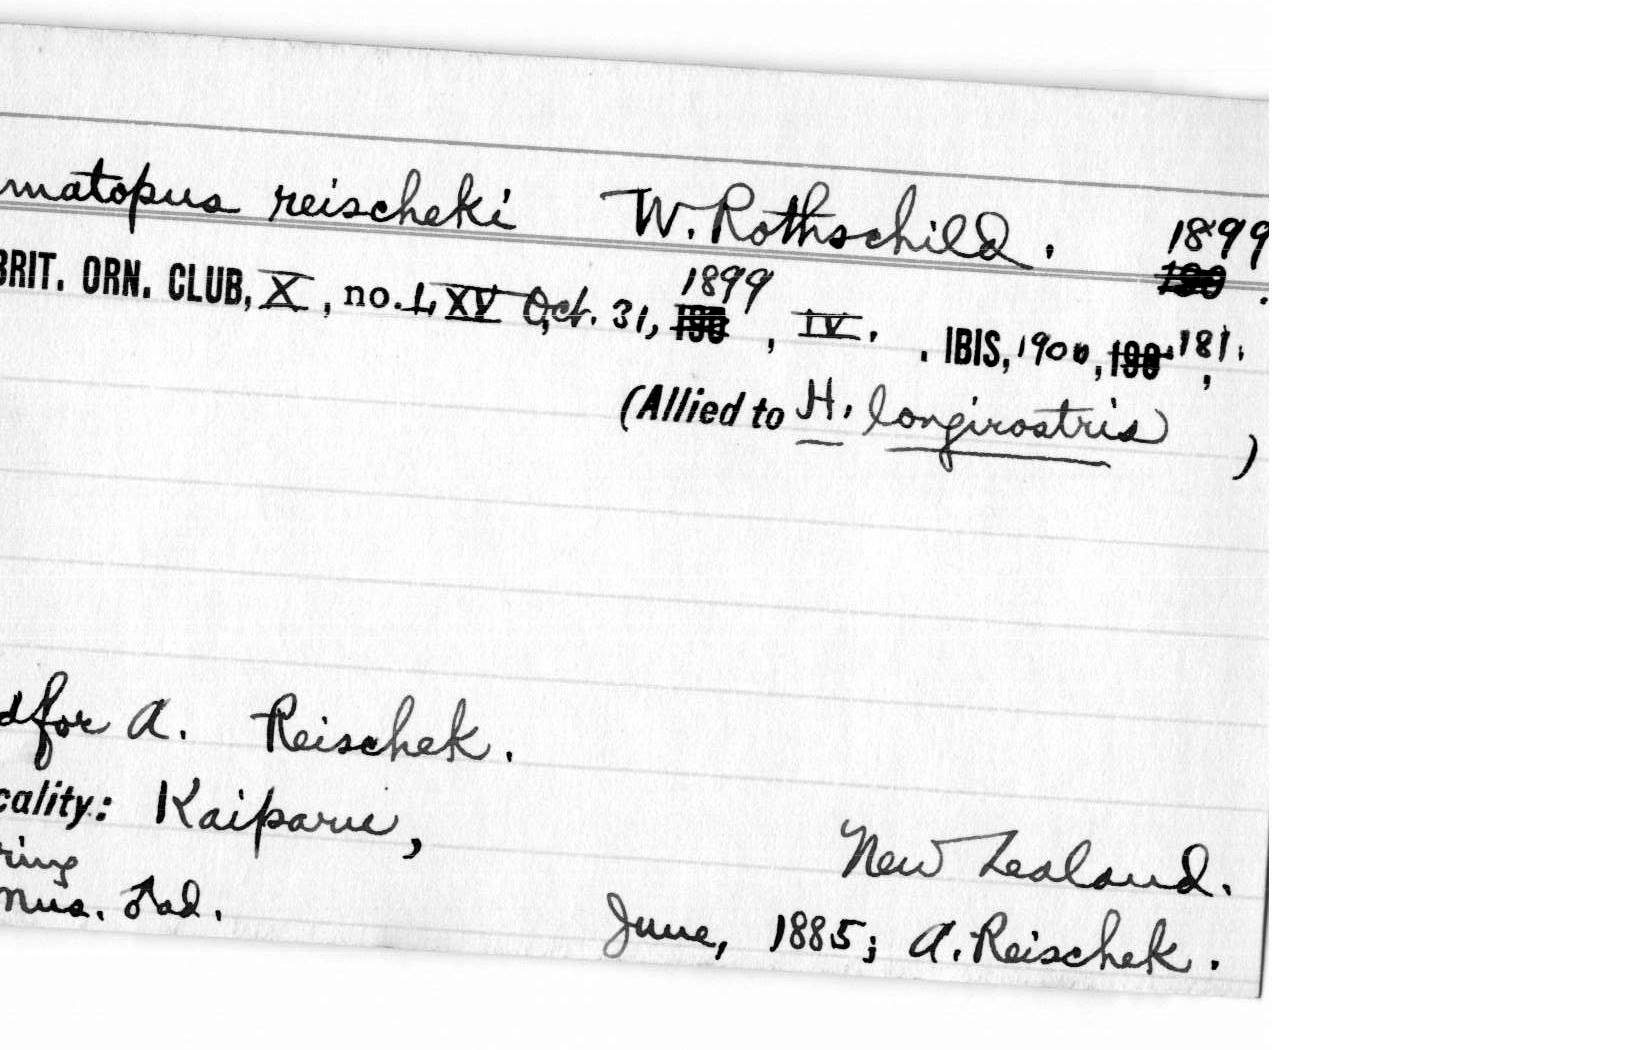 matopus reischeki W. Rothschild. 1899
BRIT. ORN. CLUB, X, no. LXV Oct. 31, 1899, IV. . IBIS, 1900, 181.
(Allied to H. longirostris )
dfor A. Reischek.
cality: Kaiparu, New Zealand.
ring
mus. ♂ ad. June, 1885; A. Reischek.